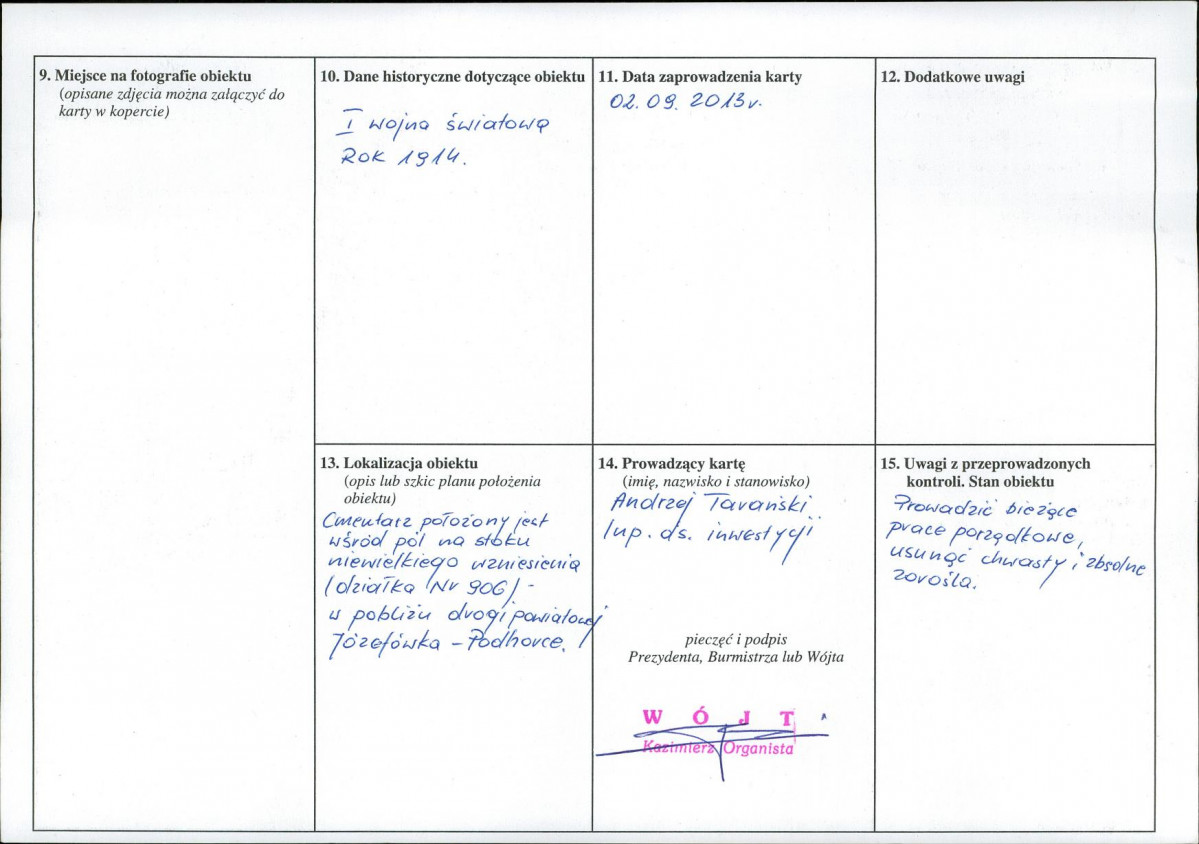 9. Miejsce na fotografie obiektu
(opisane zdjęcia można załączyć do
karty w kopercie)
10. Dane historyczne dotyczące obiektu
I wojna światowa
Rok 1914.
11. Data zaprowadzenia karty
02.09.2013r.
12. Dodatkowe uwagi
13. Lokalizacja obiektu
(opis lub szkic planu położenia
obiektu)
Cmentarz położony jest
wśród pól na stoku
niewielkiego wzniesienia
(działka Nr 906) -
w pobliżu drogi powiatowej
Józefówka - Podhorce.
14. Prowadzący kartę
(imię, nazwisko i stanowisko)
Andrzej Tarański
Inp. ds. inwestycji
pieczęć i podpis
Prezydenta, Burmistrza lub Wójta
WÓJT
Kazimierz Organista
15. Uwagi z przeprowadzonych
kontroli. Stan obiektu
Prowadzić bieżące
prace porządkowe,
usunąć chwasty i zbędne
zarośla.